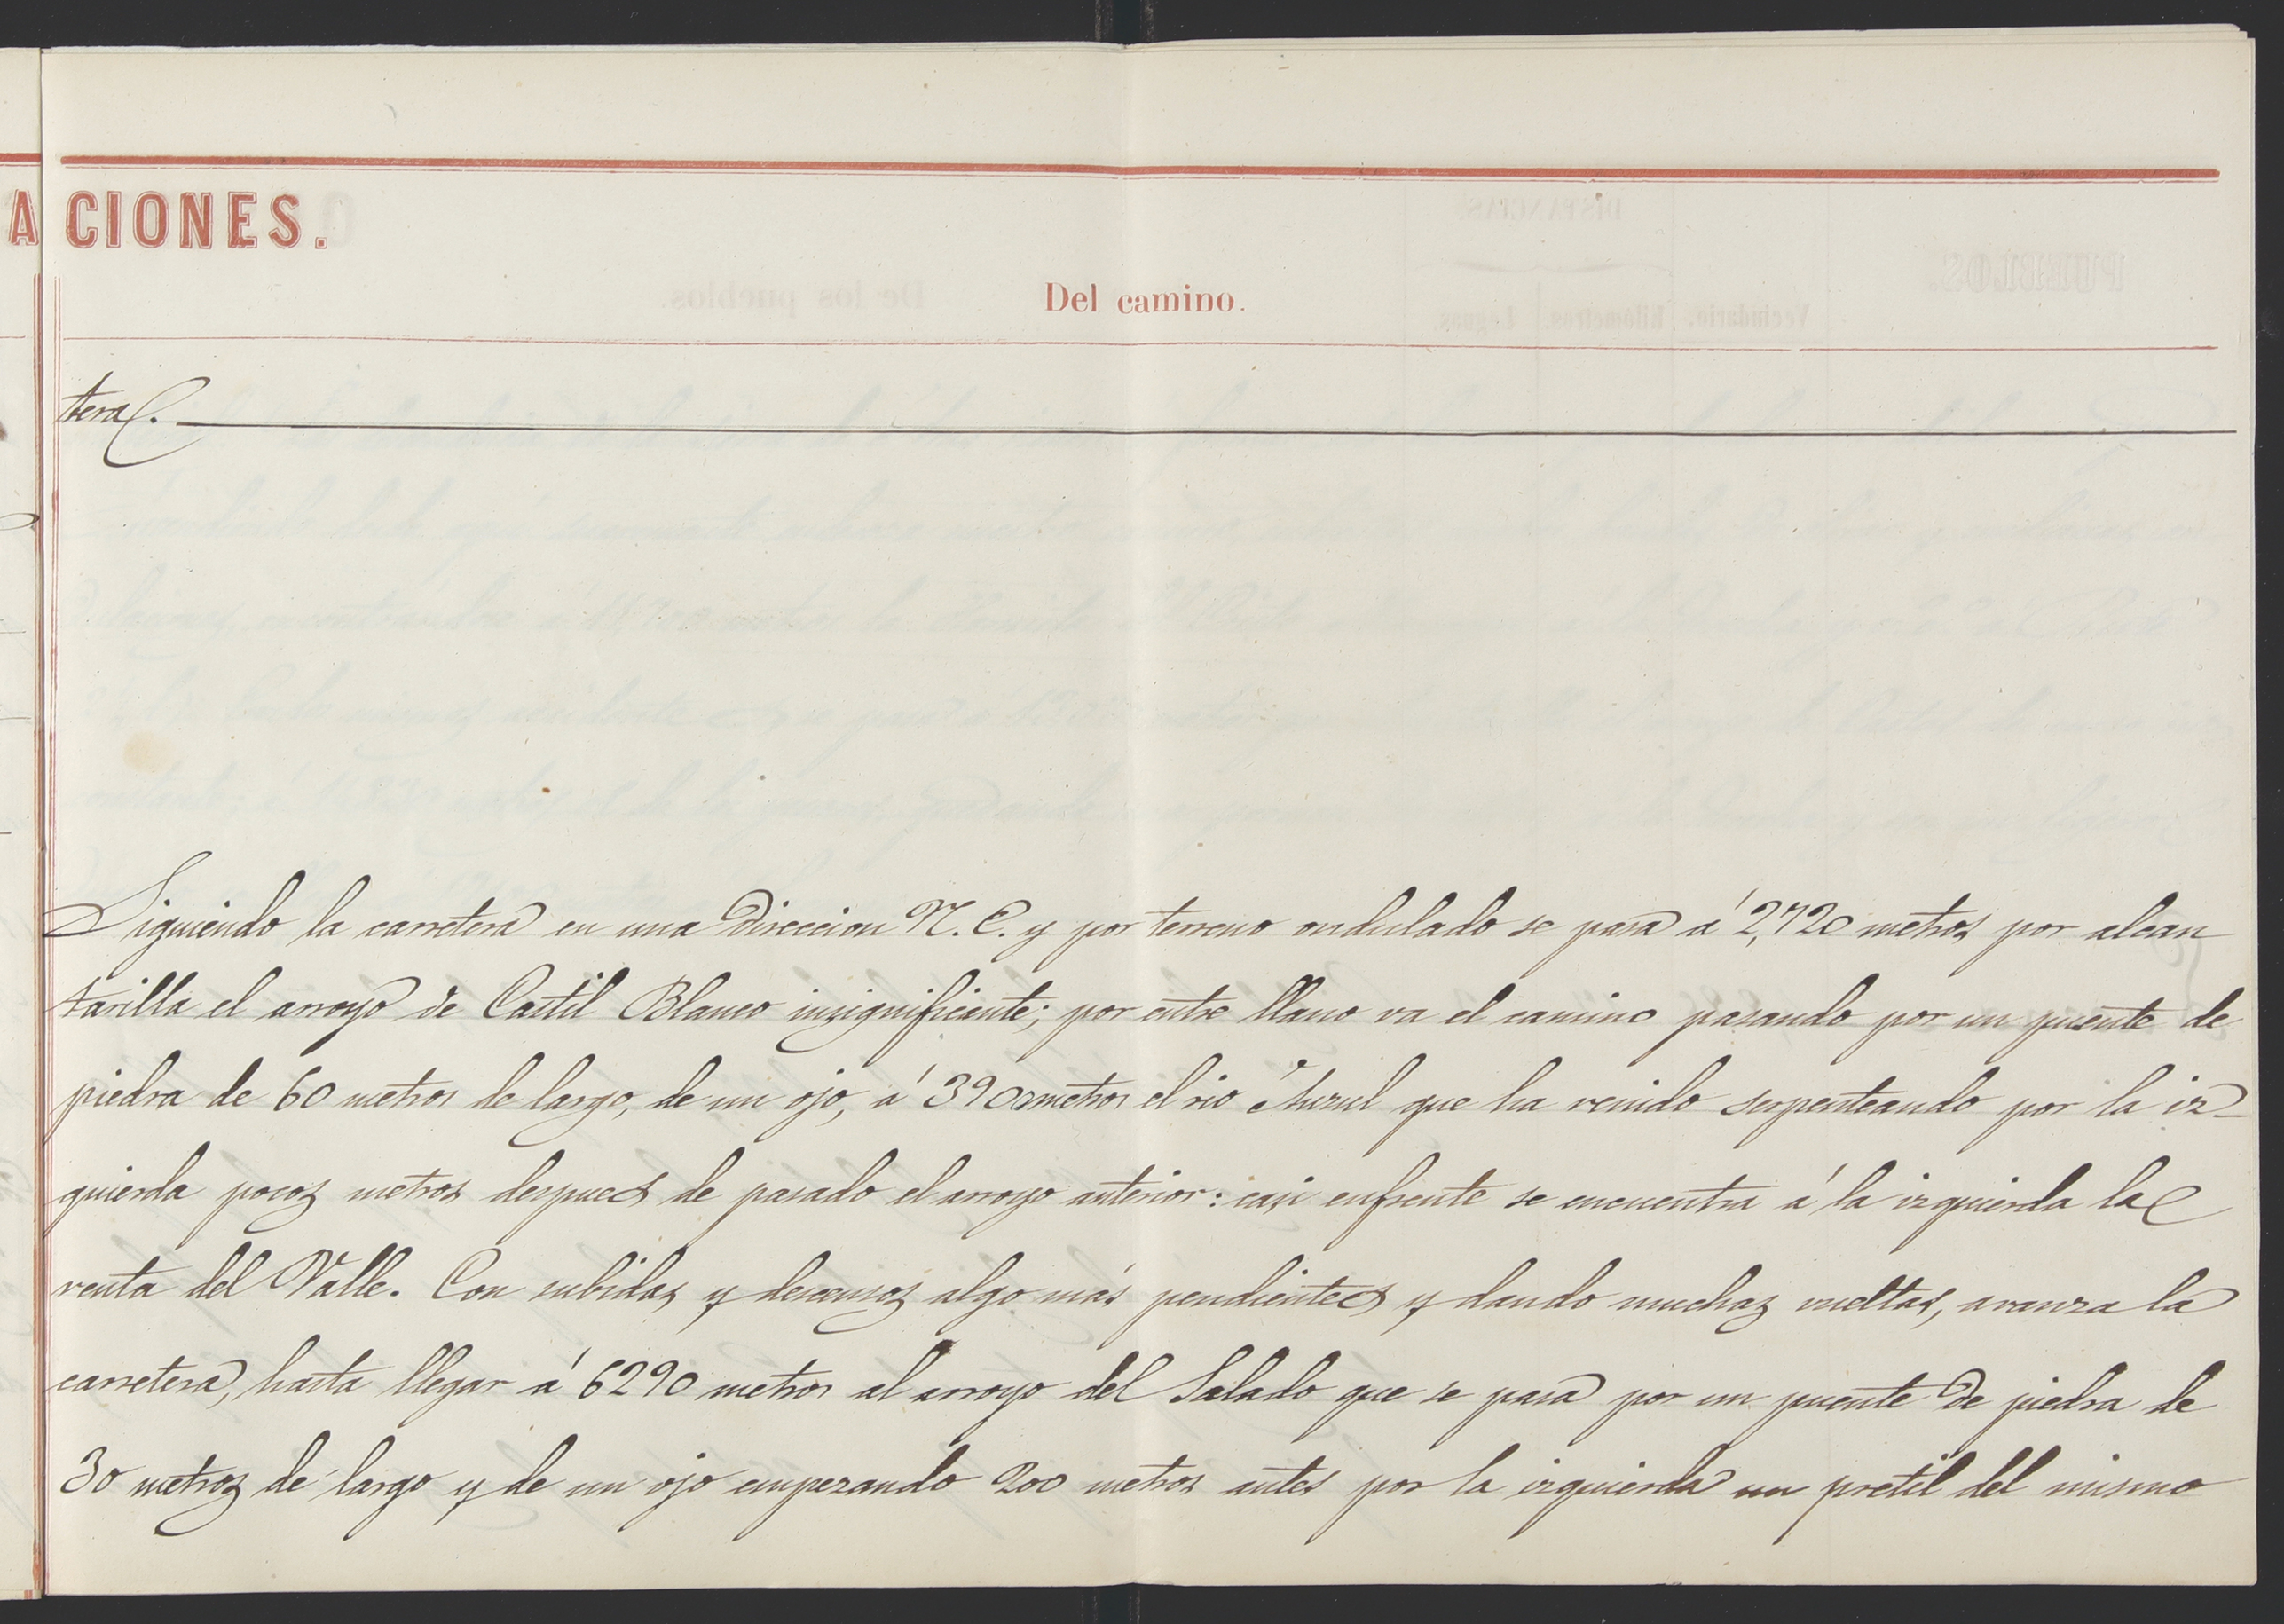 ACIONES.
Del camino.
tera.
Siguiendo la carretera en una direccion N. E. y por terreno ondulado se pasa á 2,720 metros por alcan
tarilla el arroyo de Castil Blanco insignificante; por entre llano va el camino pasando por un puente de
piedra de 60 metros de largo, de un ojo, á 3900 metros el rio que ha venido serpenteando por la iz-
quierda pocos metros despues de pasado el arroyo anterior: casi enfrente se encuentra á la izquierda la
venta del Valle. Con subidas y descensos algo más pendientes y dando muchas vueltas, avanza la
carretera, hasta llegar á 6290 metros al arroyo del Salado que se pasa por un puente de piedra de
30 metros de largo y de un ojo empezando 200 metros antes por la izquierda un pretil del mismo